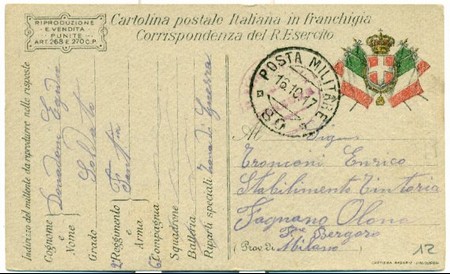 RIPRODUZIONE
E VENDITA
PUNITE
ART. 268 E 270 C.P.
Cartolina postale Italiana in franchigia
Corrispondenza del R. Esercito
POSTA MILITARE
16.10.17
80
Indirizzo del mittente da riprodurre nelle risposte
Cognome e Nome
Grado Soldato
2° Reggimento e Arma Fant
6 Compagnia
Squadrone
Batteria
Riparti speciali Zona di Guerra
Al Sigr
Tronconi Enrico
Stabilimento Tintoria
Fagnano Olona
Bergoro
(Prov. di Milano
12